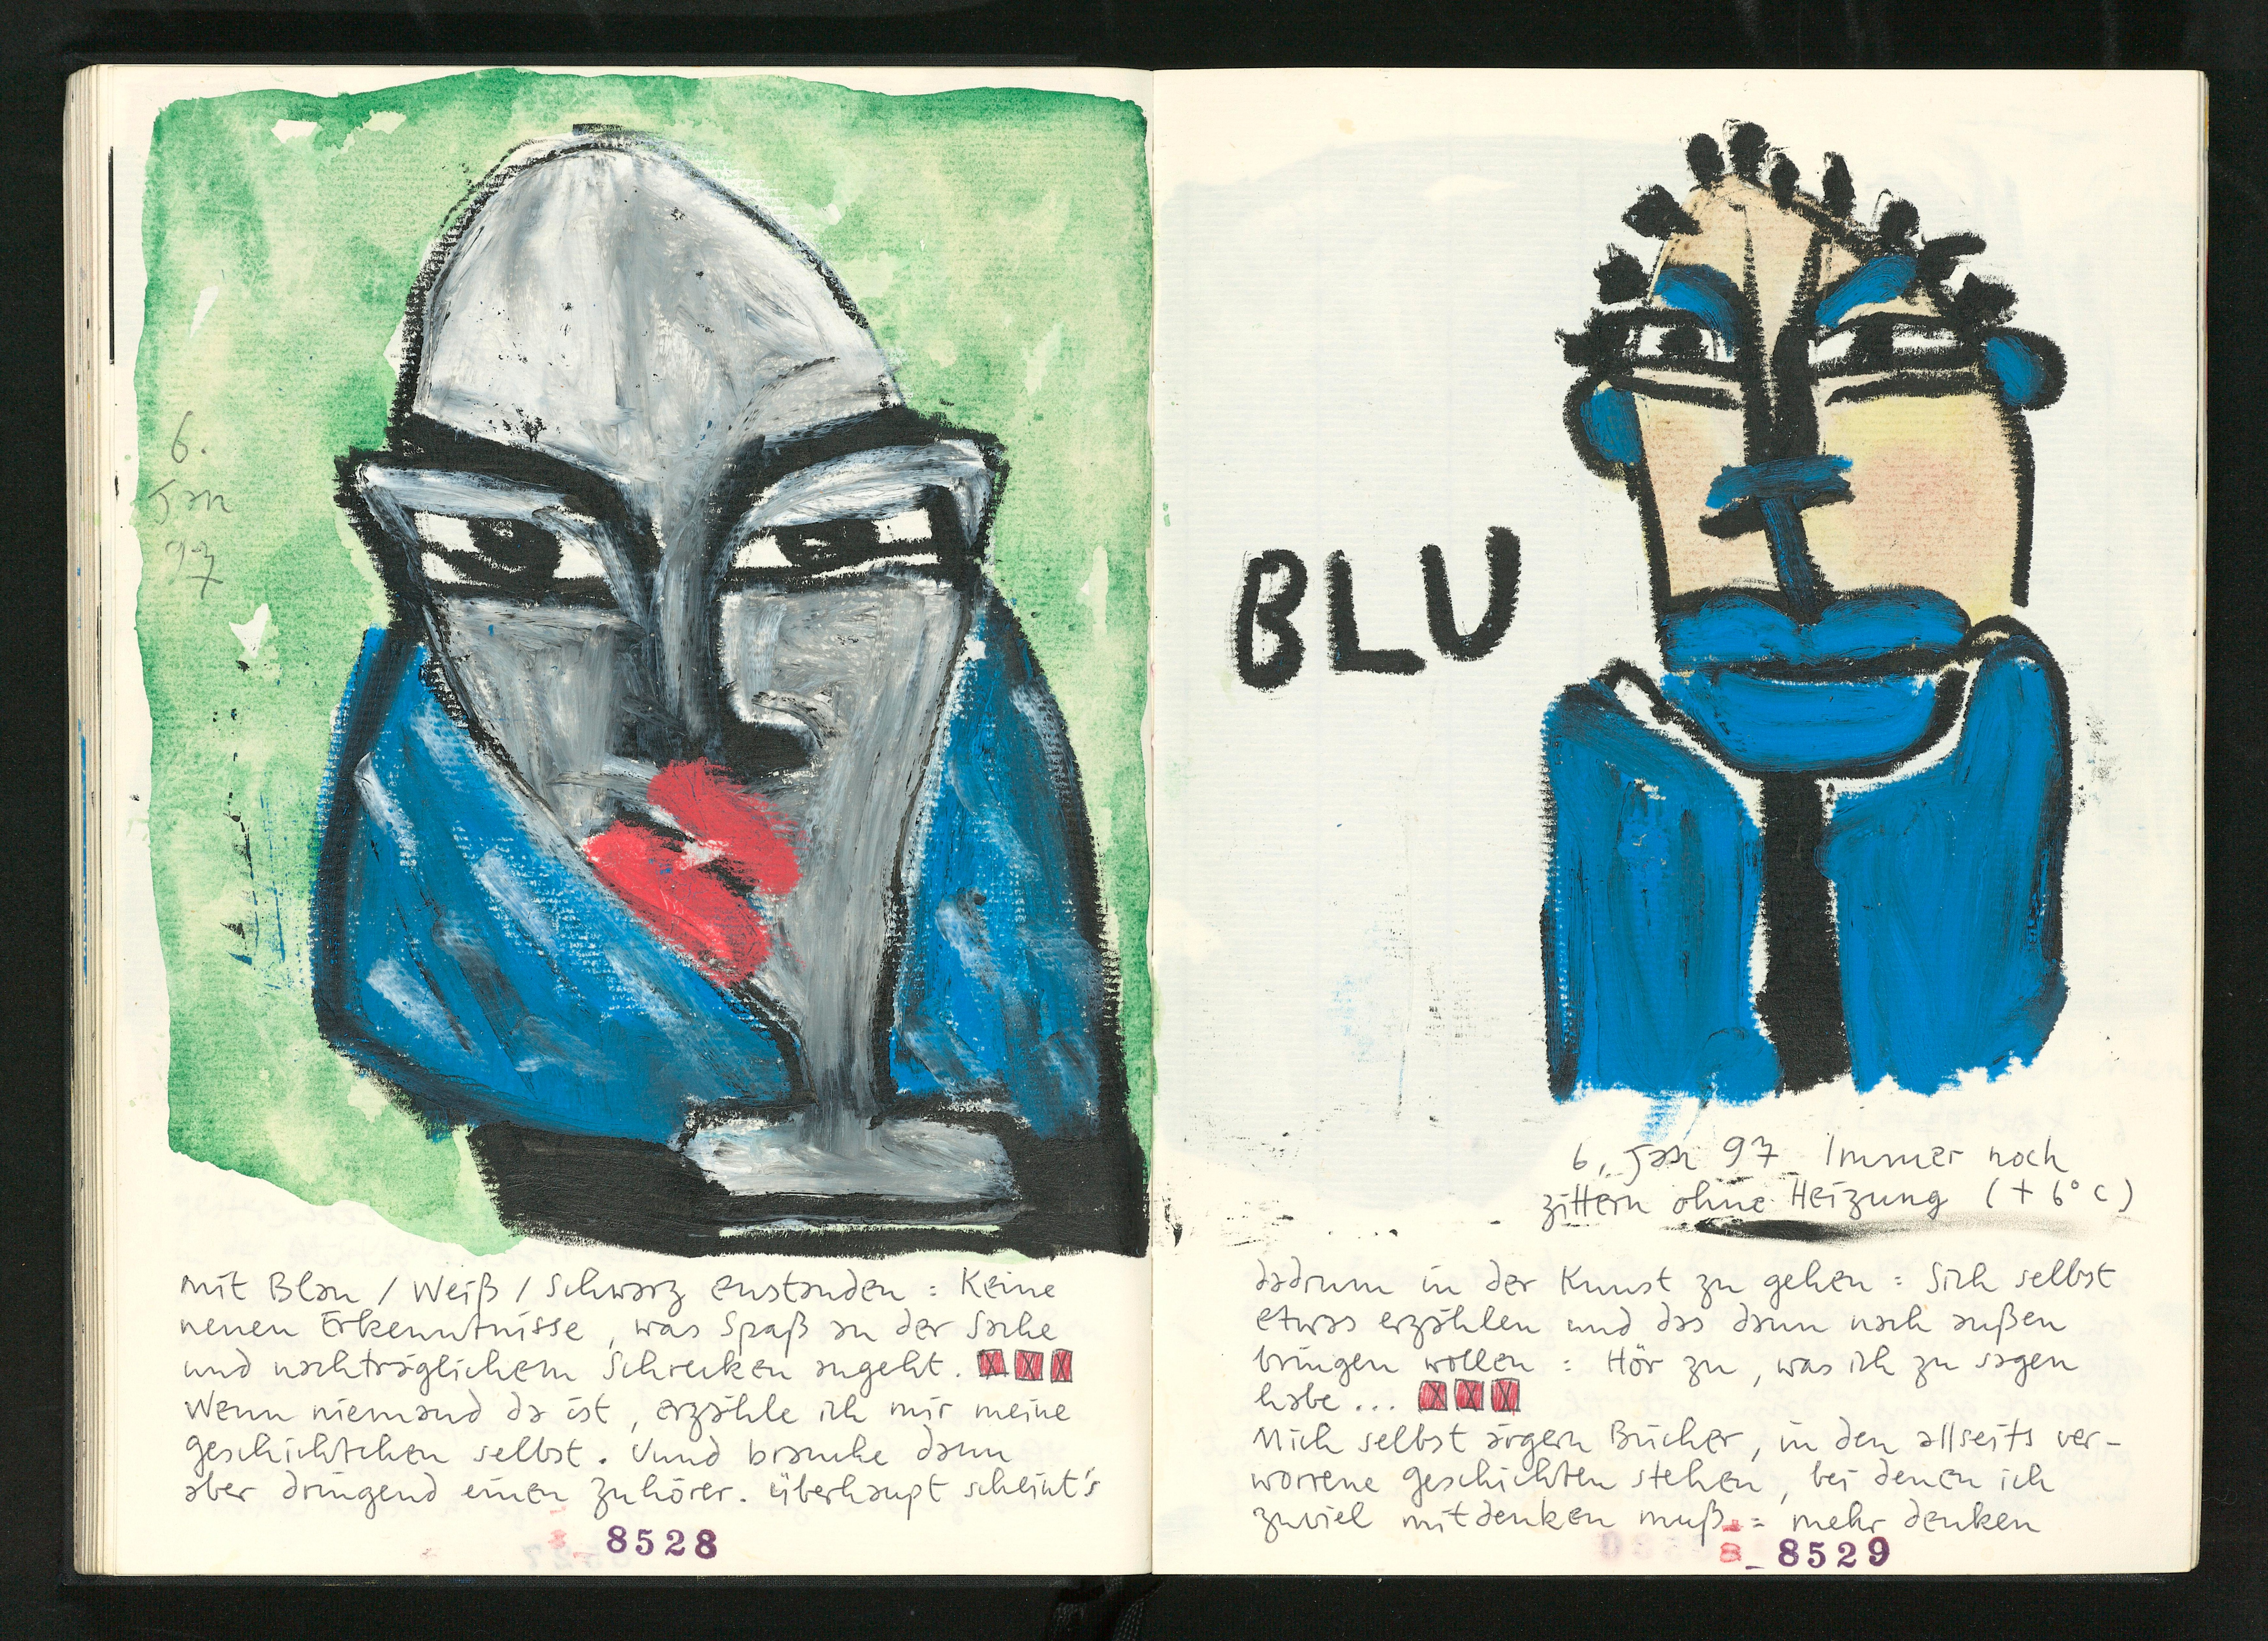 6.
Jan
97
mit Blau / Weiß / Schwarz enstanden : Keine
neuen Erkenntnisse, was Spaß an der Sache
und nachträglichem Schrecken angeht.
Wenn niemand da ist, erzähle ich mir meine
Geschichtchen selbst. Uund brauche dann
aber dringend einen Zuhörer. überhaupt scheint's
8528
BLU
6. Jan 97 Immer noch
zittern ohne Heizung (+ 6° C)
dadrum in der Kunst zu gehen : Sich selbst
etwas erzählen und das dann nach außen
bringen wollen : Hör zu, was ich zu sagen
habe ...
Mich selbst ärgern Bücher, in den allseits ver-
worrene Geschichten stehen, bei denen ich
zuviel mitdenken muß := mehr denken
8 8529